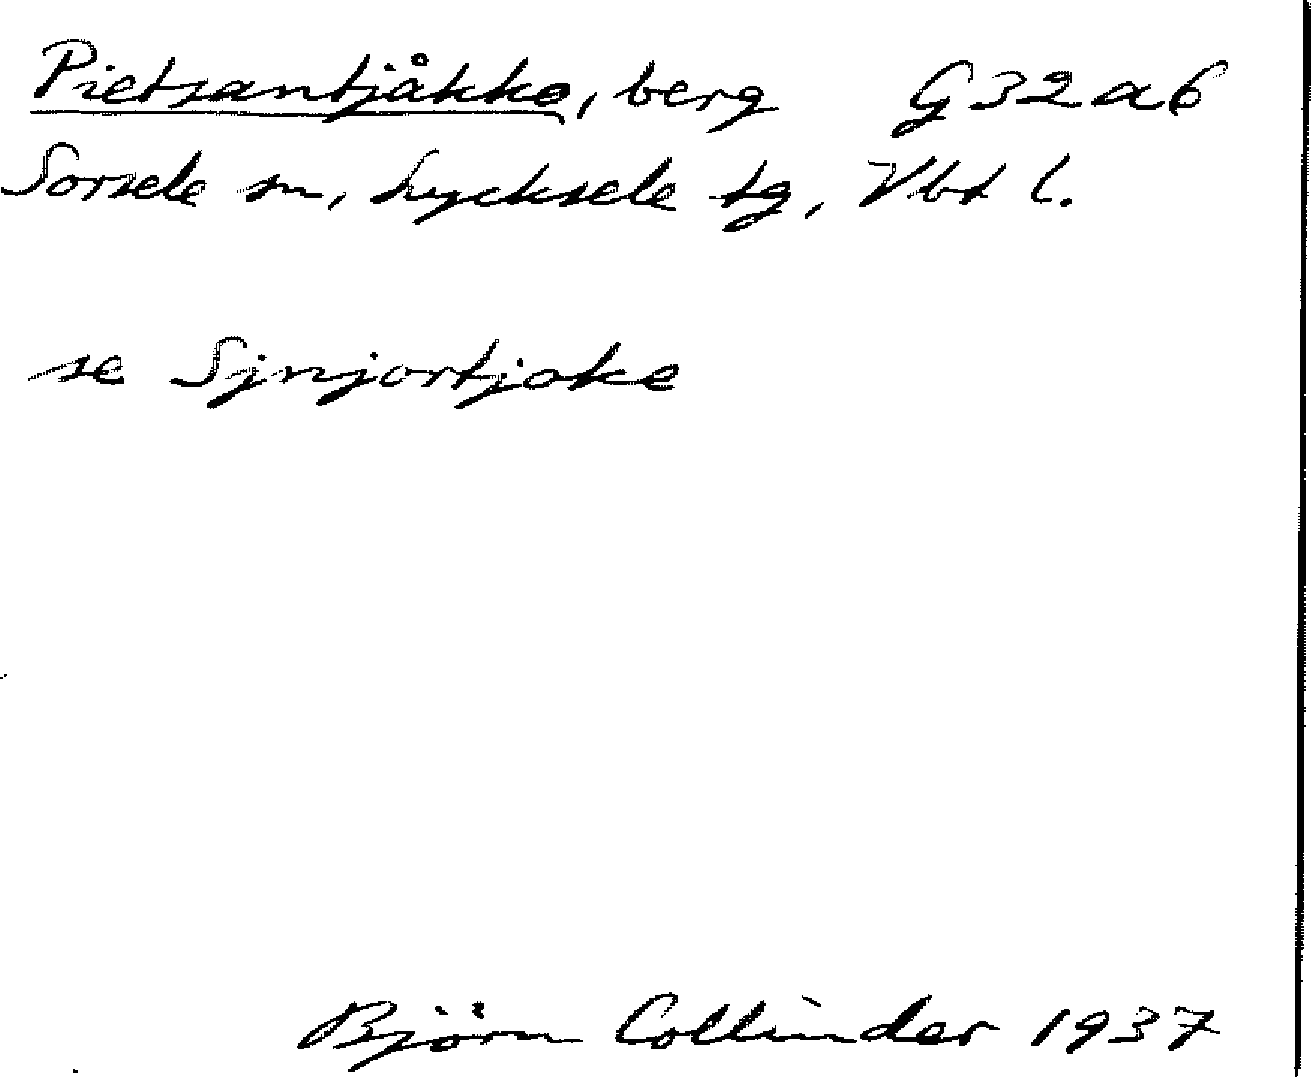 Pietsantjåkko, berg G32a6
Sorsele sn, Lycksele tg, Vbt l.
se Sjnjortjoke
Björn Collinder 1937